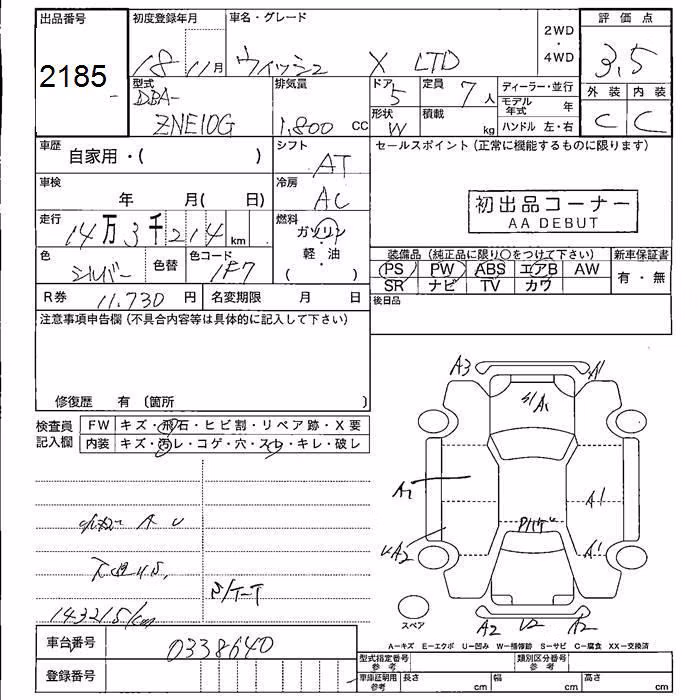 出品番号
2185
初度登録年月
18 11月
車名・グレード
ウィッシュ X LTD
2WD
・
4WD
評価点
3.5
外装 内装
C C
型式
DBA-
ZNE10G
排気量
1.800 CC
ドア
5
定員
7人
形状
W
積載
kg
ディーラー・並行
モデル年式 年
ハンドル 左・右
車歴
自家用・( )
シフト
AT
セールスポイント(正常に機能するものに限ります)
初出品コーナー
AA DEBUT
車検
年 月( 日)
冷房
AC
走行
14万3千214 km
燃料
ガソリン
・
軽・油
( )
色
シルバー
色替
色コード
1F7
装備品(純正品に限り○をつけて下さい)
新車保証書
PS PW ABS エアB AW
SR ナビ TV カワ
有・無
後日品
R券 11.730 円
名変期限 月 日
注意事項申告欄(不具合内容等は具体的に記入して下さい)
修復歴 有(箇所 )
検査員
記入欄
FW キズ・飛石・ヒビ割・リペア跡・X要
内装 キズ・汚レ・コゲ・穴・スレ・キレ・破レ
A3
A1
S/A1
A1
A1
A1
A2
A2 U2 A2
A U
S/T-T
143215km
スペア
A−キズ E−エクボ U−凹み W−補修跡 S−サビ C−腐食 XX−交換済
車台番号
0338640
登録番号
型式指定番号
参考
類別区分番号
参考
車庫証明用
参考
長さ cm 幅 cm 高さ cm